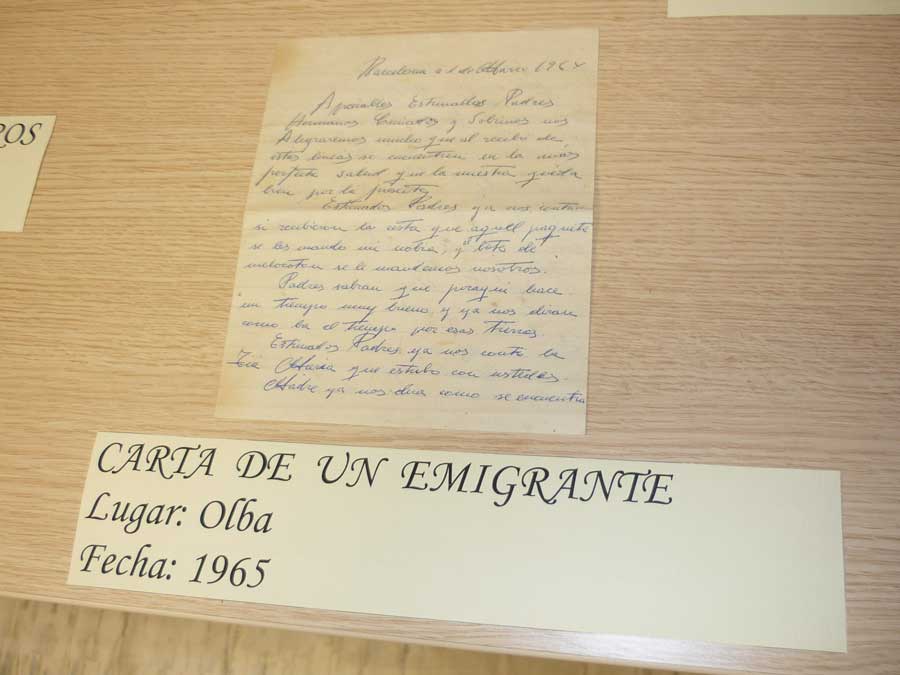 ROS
Barcelona a 1 de Marzo 1964
Apreciables Estimados Padres
Hermanos Cuñados y Sobrinos nos
Alegraremos mucho que al recibo de
estas lineas se encuentren en la más
perfecta salud que la nuestra queda
bien por la presente
Estimados Padres ya nos contar
si recibieron la cesta que aquell paquete
se les mando mi y el bote de
melocoton se le mandemos nosotros.
Padres sabran que poraqui hace
un tiempo muy bueno, y ya nos diran
como ba el tiempo por esas tierras.
Estimados Padres ya nos conto la
Tia Maria que estubo con ustedes.
Madre ya nos dira como se encuentra
CARTA DE UN EMIGRANTE
Lugar: Olba
Fecha: 1965